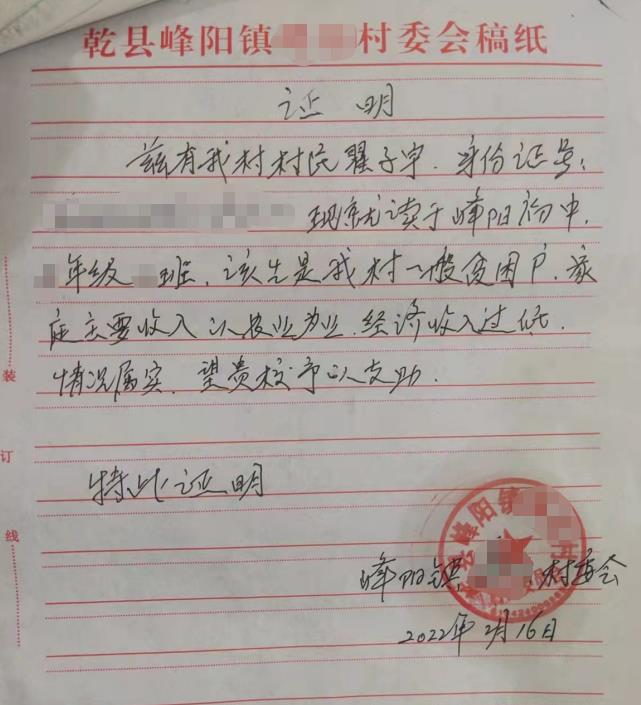 乾县峰阳镇村委会稿纸
证 明
兹有我村村民瞿子宇，身份证号：
现就读于峰阳初中，
年级 班，该生是我村一般贫困户，家
庭主要收入以农业为业，经济收入过低，
情况属实，望贵校予以支助．
特此证明
峰阳镇 村委会
2022年2月16日
县峰阳镇
装
订
线